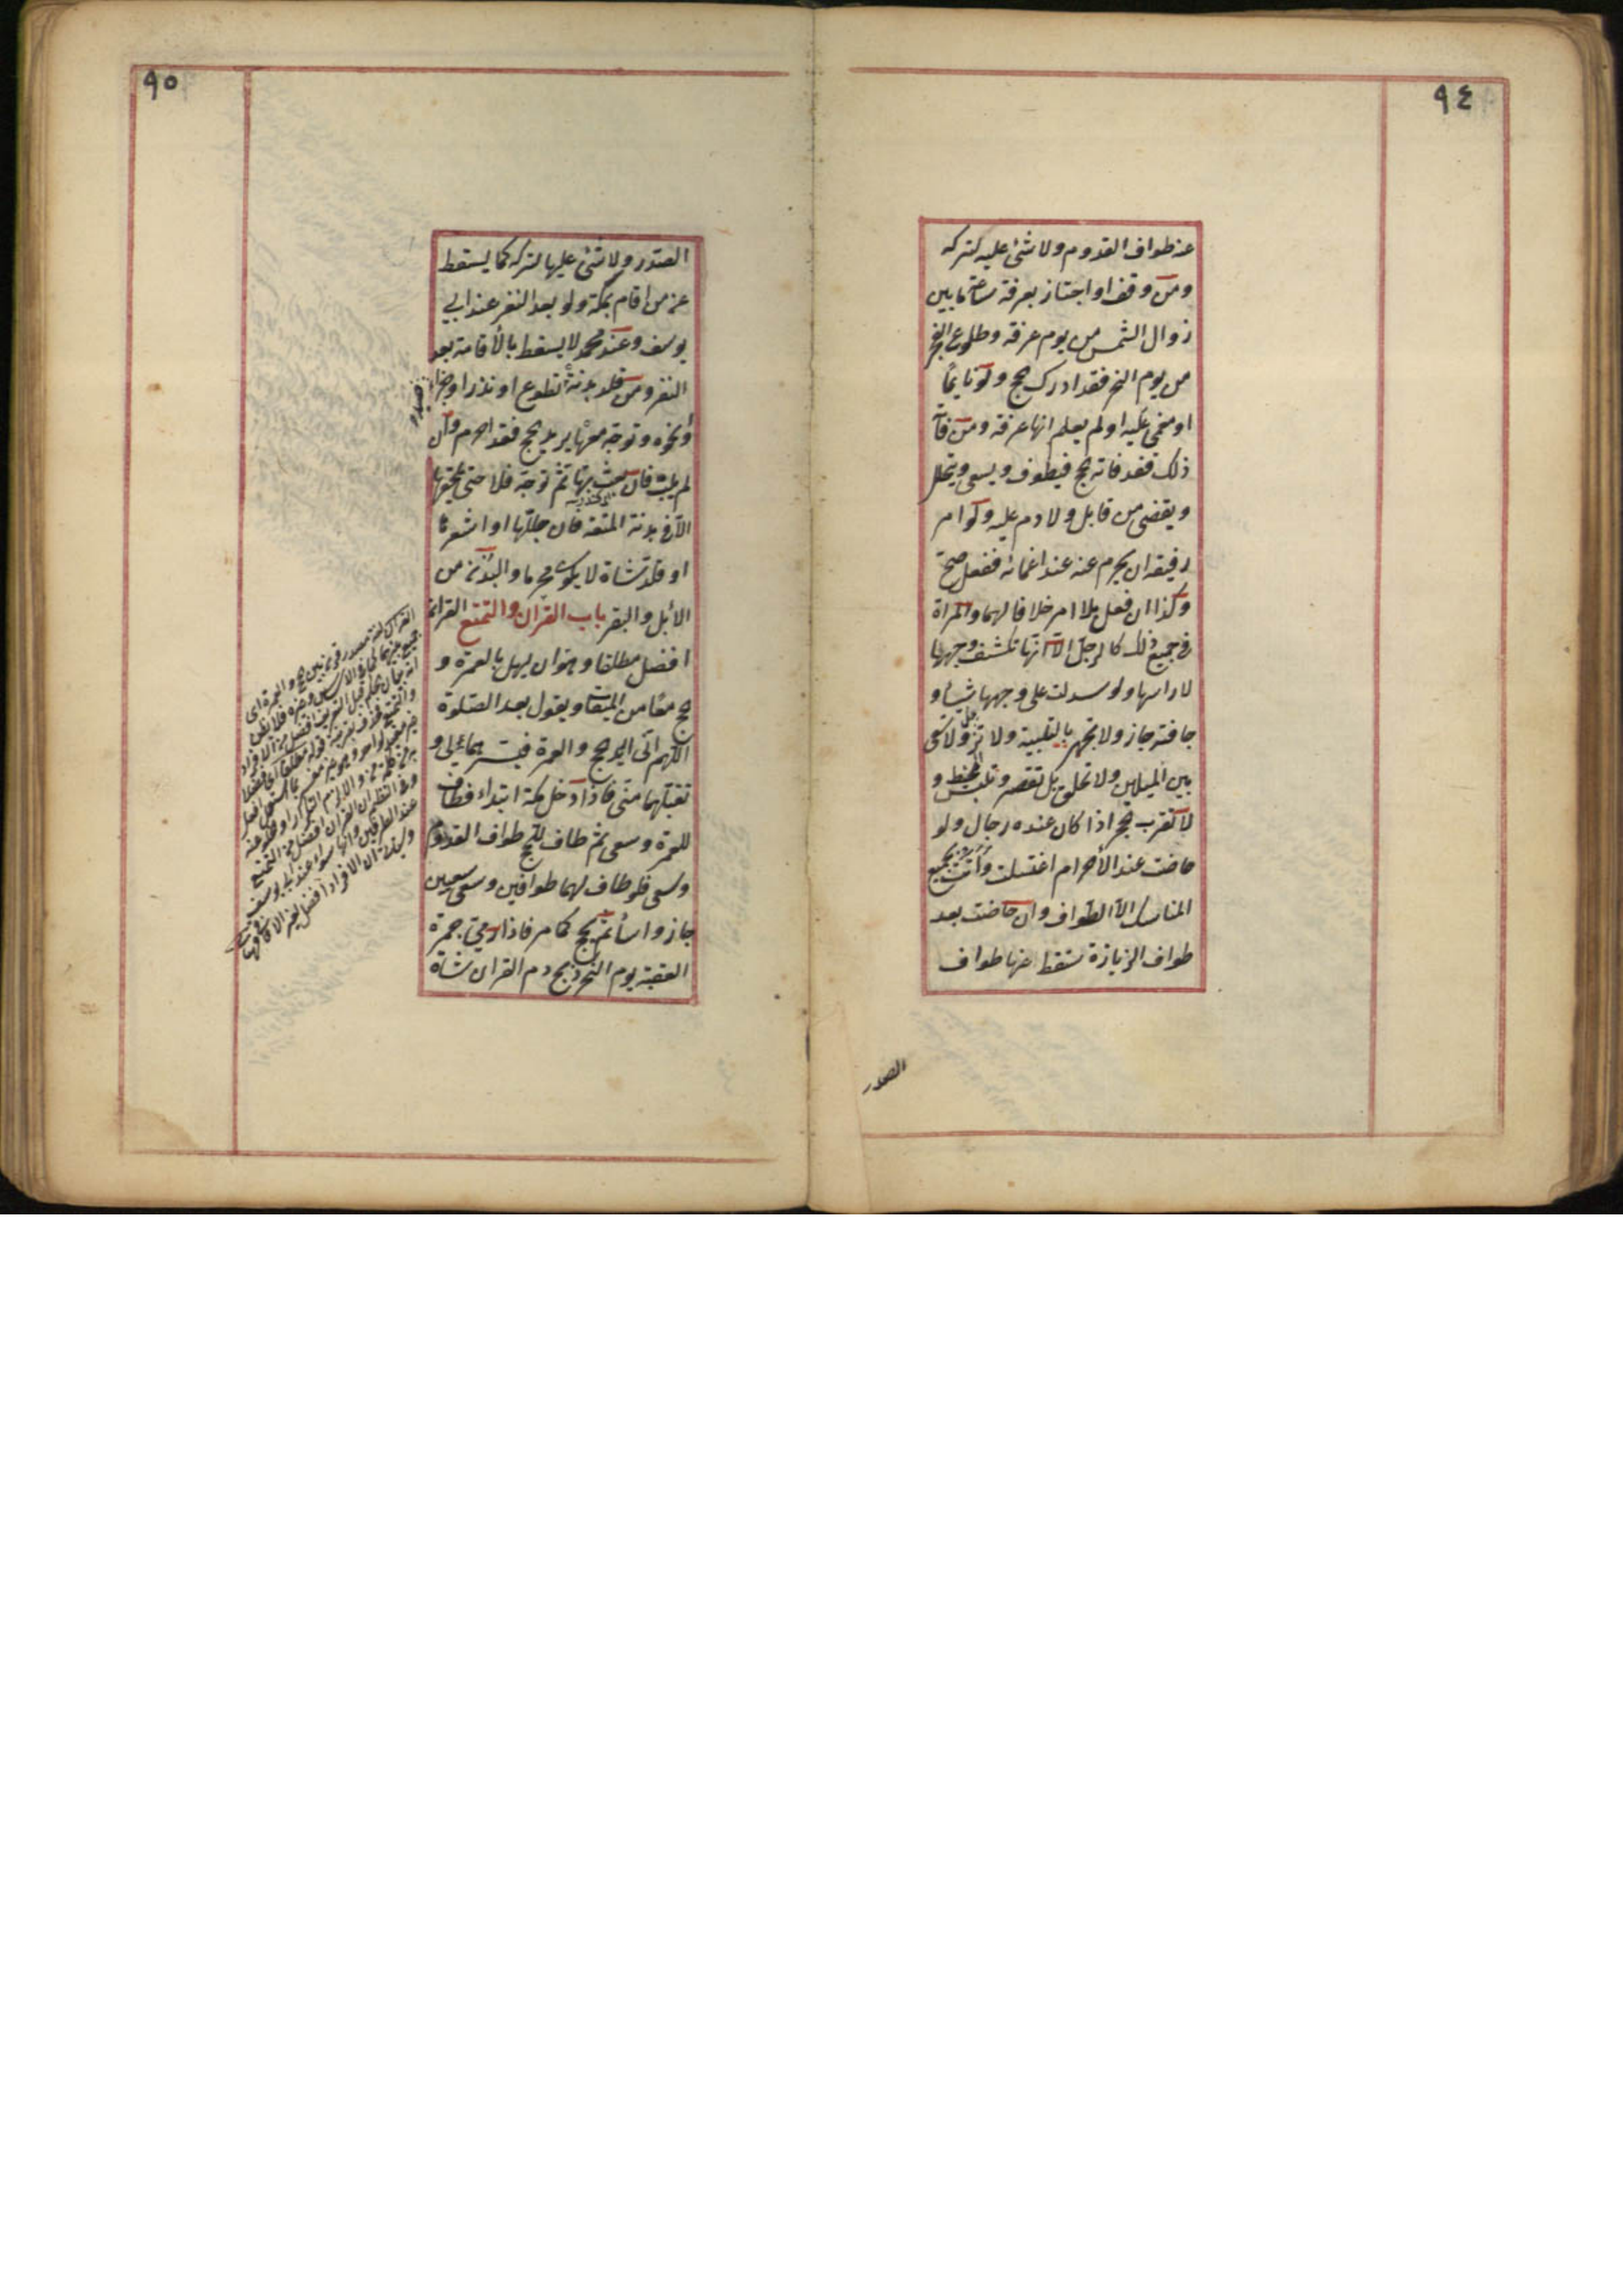 ٩٤
عنه طواف القدوم ولا شئ عليه لتركه
ومن وقف او اجتاز بعرفة ساعة ما بين
زوال الشمس من يوم عرفة وطلوع الفجر
من يوم النحر فقد ادرك الحج ولو نايمًا
او مغمى عليه او لم يعلم انها عرفة ومن فاته
ذلك فقد فاته الحج فيطوف ويسعى ويتحلل
ويقضى من قابل ولا دم عليه ولو امر
رفيقه ان يحرم عنه عند اغمائه ففعل صح
وكذا ان فعل بلا امر خلافا لهما والمراة
فى جميع ذلك كالرجل الا انها تكشف وجهها
لا راسها ولو سدلت على وجهها شيأ و
جافته جاز ولا تجهر بالتلبية ولا ترمل ولا تسعى
بين الميلين ولا تحلق بل تقصر وتلبس المخيط و
لا تقرب الحجر اذا كان عنده رجال ولو
حاضت عند الأحرام اغتسلت وأتت بجميع
المناسك الا الطواف وان حاضت بعد
طواف الزيارة سقط عنها طواف
الصدر
٩٥
الصدر ولا شئ عليها لتركه كما يسقط
عن من اقام بمكة ولو بعد النفر عند ابي
يوسف وعند محمد لا يسقط بالأقامة بعد
النفر ومن قلد بدنة تطوع او نذر او جزاء
صيد
او نحوه وتوجه معها يريد الحج فقد احرم وان
لم يلب فان بعث بها ثم توجه فلا حتى يلحقها
الا فى بدنة المتعة فان جللها او اشعرها
او قلد شاة لا يكون محرما والبدن من
الأبل والبقر باب القران والتمتع القران
افضل مطلقا وهو ان يهل بالعمرة و
الحج معًا من الميقات ويقول بعد الصلوة
اللهم انى اريد الحج والعمرة فيسرهما لى و
تقبلهما منى فاذا دخل مكة ابتداء فطاف
للعمرة وسعى ثم طاف للحج طواف القدوم
وسعى فلو طاف لهما طوافين وسعى سعيين
جاز واساء ثم يحج كما مر فاذا رمى جمرة
العقبة يوم النحر ذبح دم القران شاة
القران لغة مصدر قرن بين الحج والعمرة اى
جمع بينهما